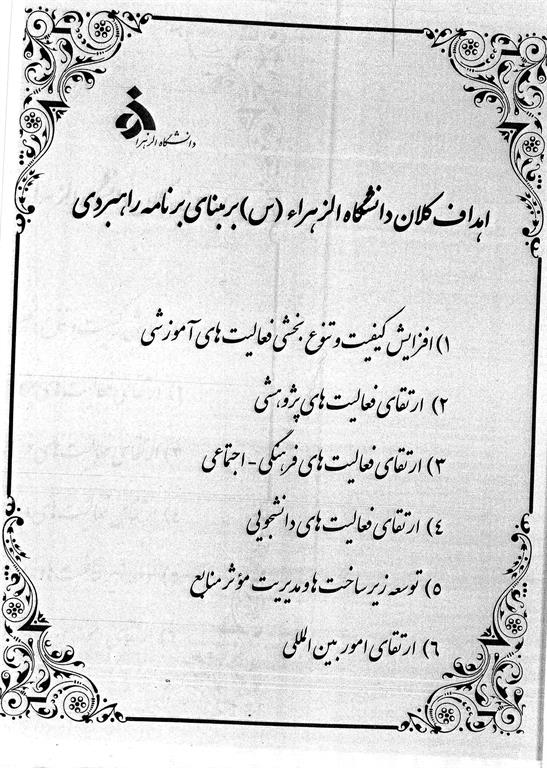 دانشگاه الزهرا
اهداف کلان دانشگاه الزهراء (س) بر مبنای برنامه راهبردی
۱) افزایش کیفیت و تنوع بخشی فعالیت های آموزشی
۲) ارتقای فعالیت های پژوهشی
۳) ارتقای فعالیت های فرهنگی - اجتماعی
٤) ارتقای فعالیت های دانشجویی
٥) توسعه زیر ساخت ها و مدیریت مؤثر منابع
٦) ارتقای امور بین المللی